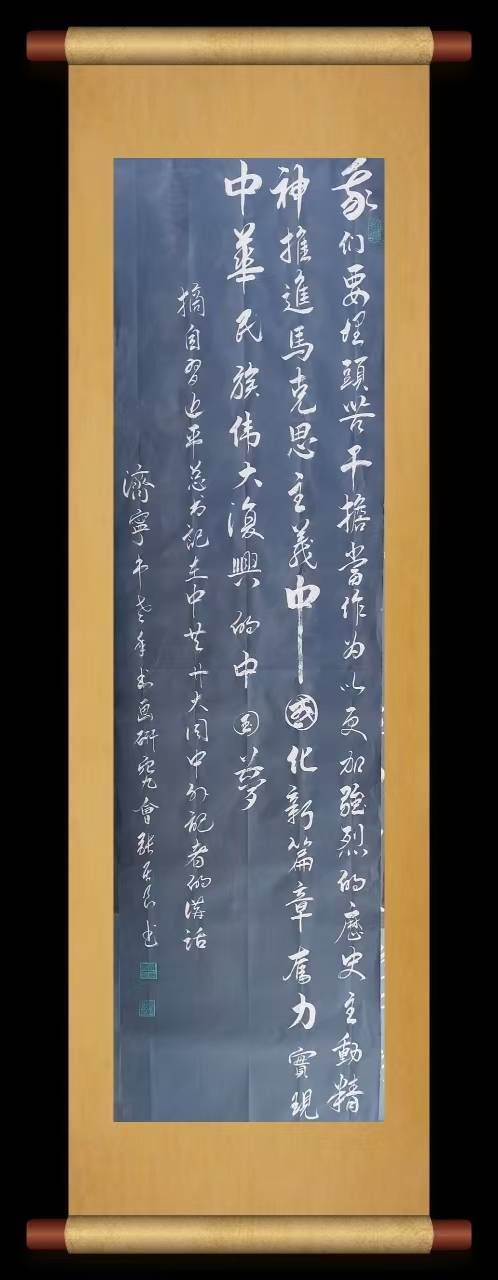 我们要埋頭苦干擔當作为以更加强烈的歷史主動精
神推進馬克思主義中國化新篇章奮力實現
中華民族伟大復興的中国夢
摘自習近平总书記在中共廿大同中外記者的講話
濟寧市老年书画研究會張书